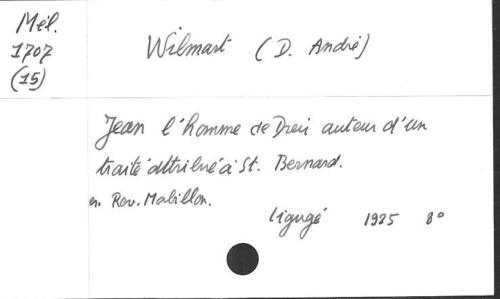 Mél.
1707
(15)
Wilmart (D. André)
Jean l'homme de Dieu auteur d'un
traité attribué à St. Bernard.
in Rev. Mabillon.
Ligugé 1925 8°